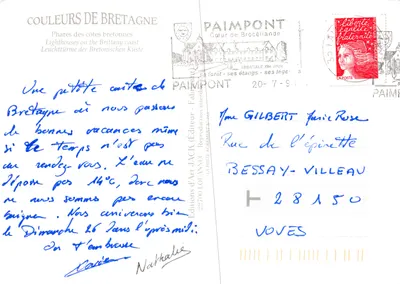 COULEURS DE BRETAGNE
Phares des côtes bretonnes
Lighthouses on the Brittany coast
Leuchttürme der Bretonischen Küste
PAIMPONT
Cœur de Brocéliande
PAIMPONT
20-7-9
PAIMPONT
Une petite carte de
Bretagne où nous passons
de bonnes vacances même
si le temps n'est pas
au rendez vous. L'eau ne
dépasse pas 14°C, donc nous
ne nous sommes pas encore
baignés. Nous arriverons bien
le Dimanche 26 dans l'après midi.
On t'embrasse
Nathalie
Mme GILBERT Marie Rose
Rue de l'épinette
BESSAY-VILLEAU
28150
VOVES